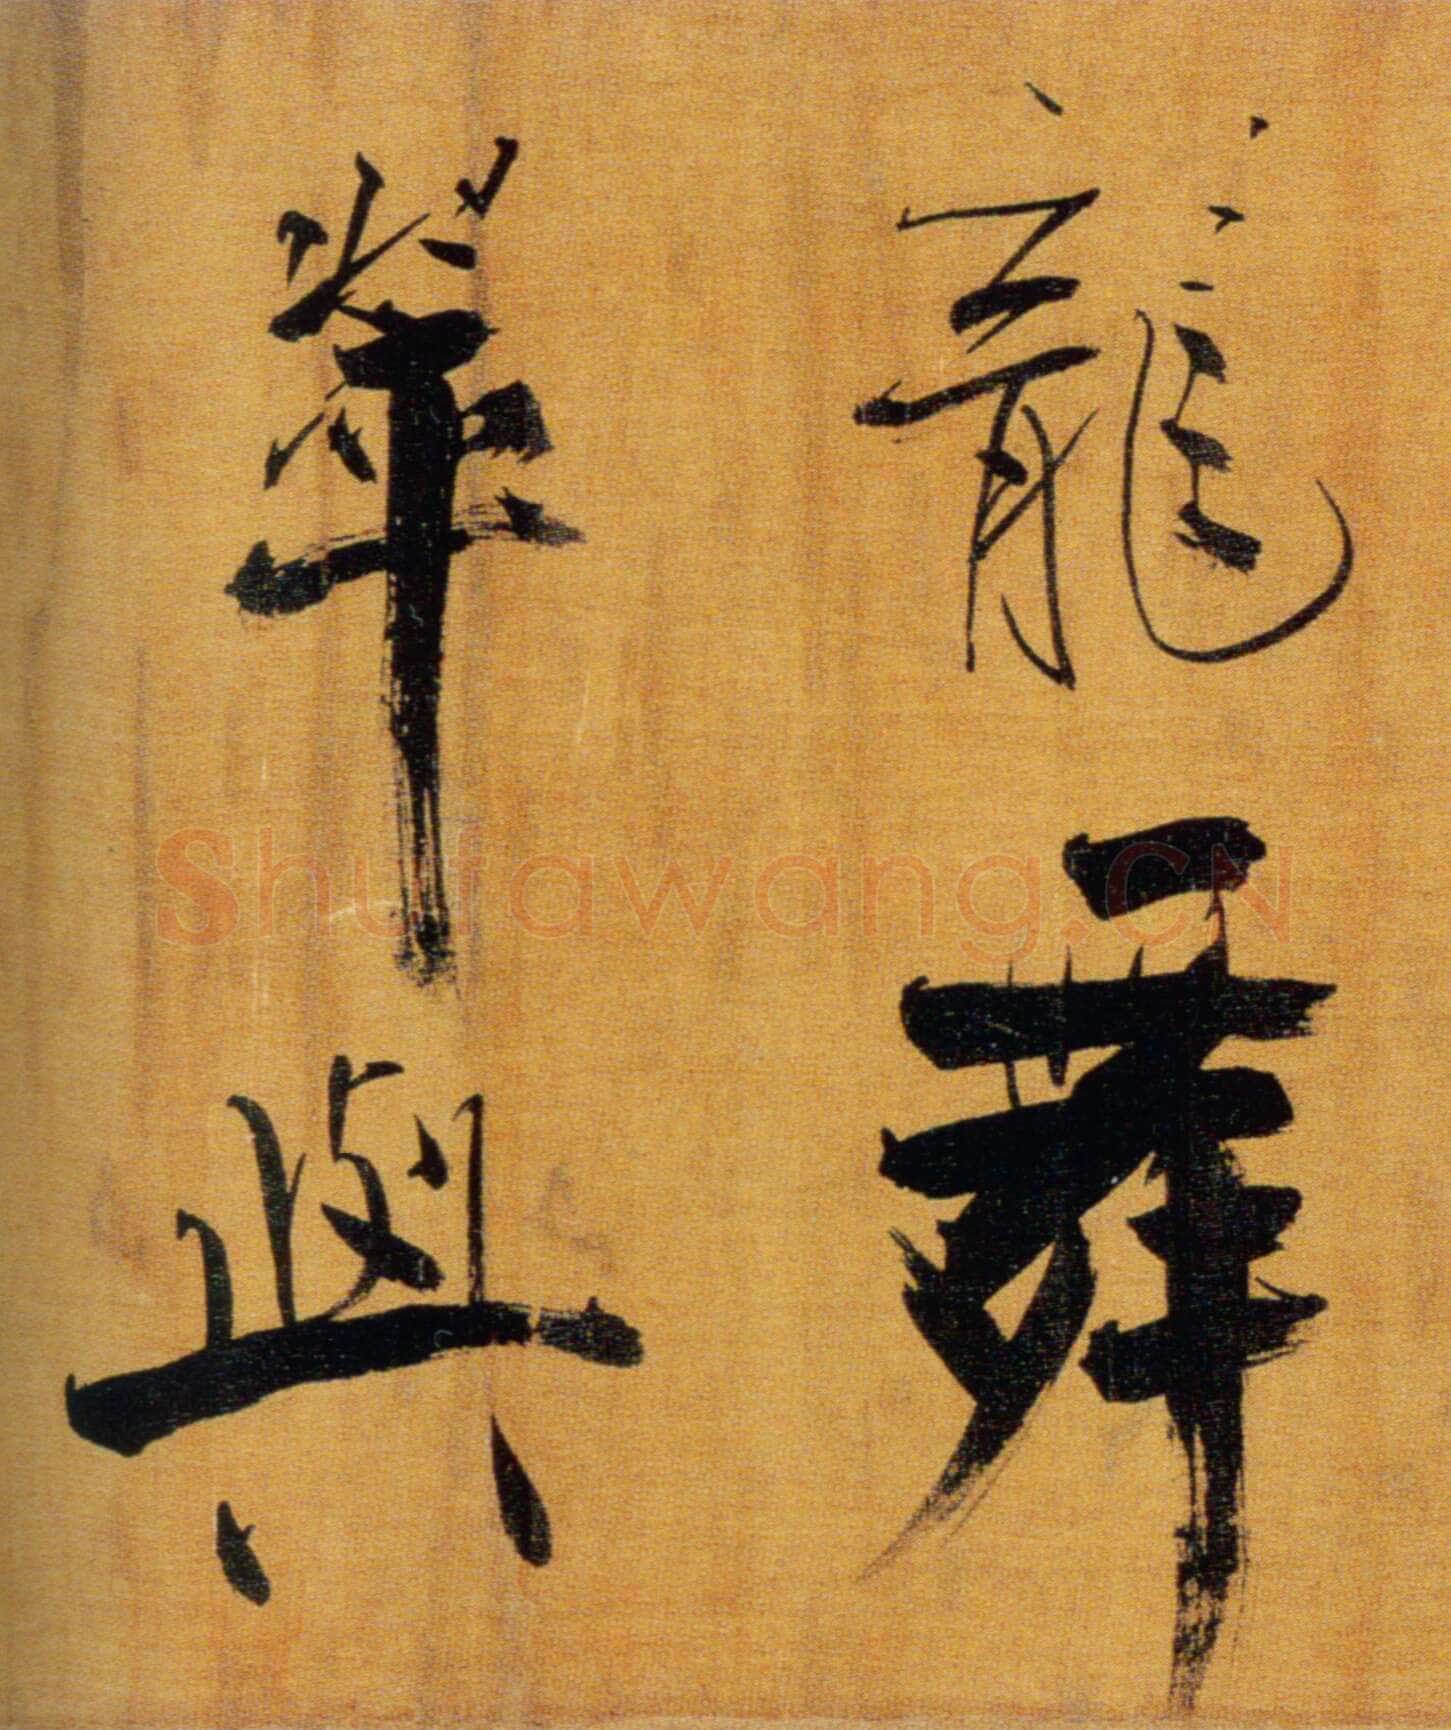 龍舞
翠與
Shufawang.CN